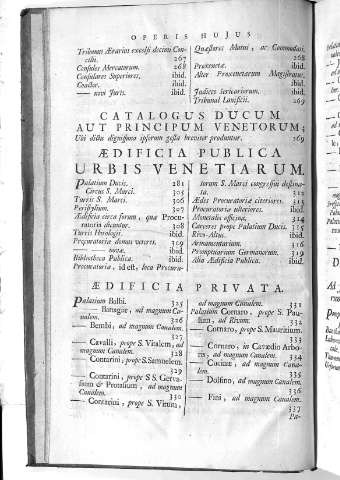 OPERIS HUJUS
Tribunus Ærarius excelsi decimi Con-
cilii. 267
Consules Mercatorum. 268
Consulares Superiores. ibid.
Coactor. ibid.
—— novi Juris. ibid.
Quæstores Mutui, ac Commodati.
268
Proxenetæ. ibid.
Alter Proxenetarum Magistratus.
ibid.
Judices sericariorum. ibid.
Tribunal Lanificii. 269
CATALOGUS DUCUM
AUT PRINCIPUM VENETORUM;
Ubi dictu dignissima ipsorum gesta breviter produntur. 269
ÆDIFICIA PUBLICA
URBIS VENETIARUM.
Palatium Ducis. 281
Circus S. Marci. 305
Turris S. Marci. 306
Peristylium. 307
Ædificia circa forum, quæ Procu-
ratiæ dicuntur. 308
Turris Horologii. ibid.
Procuratiæ domus veteres. 309
—— novæ. ibid.
Bibliotheca Publica. ibid.
Procuratia, id est, loca Procura-
torum S. Marci congressui destina-
ta. 312
Ædes Procuratiæ citerioris. 313
Procuratia ulterioris. ibid.
Monetalis officina. 314
Carceres prope Palatium Ducis. 315
Rivus Altus. ibid.
Armamentarium. 316
Promptuarium Germanorum. 319
Alia Ædificia Publica. ibid.
ÆDIFICIA PRIVATA.
Palatium Balbi. 325
—— Battagiæ, ad magnum Ca-
nalem. 326
—— Bembi, ad magnum Canalem.
327
—— Cavalli, prope S. Vitalem, ad
magnum Canalem. 328
—— Contarini, prope S. Samuelem.
329
—— Contarini, prope S S. Gerva-
sium & Protasium, ad magnum
Canalem. 330
—— Contarini, prope S. Vitum,
ad magnum Canalem. 331
Palatium Cornaro, prope S. Pau-
lum, ad Rivum. 332
—— Cornaro, prope S. Mauritium.
333
—— Cornaro, in Cavædio Arbo-
ris, ad magnum Canalem. 334
—— Cucinæ, ad magnum Cana-
lem. 335
—— Dolfino, ad magnum Canalem.
336
—— Fini, ad magnum Canalem.
337
Pa-